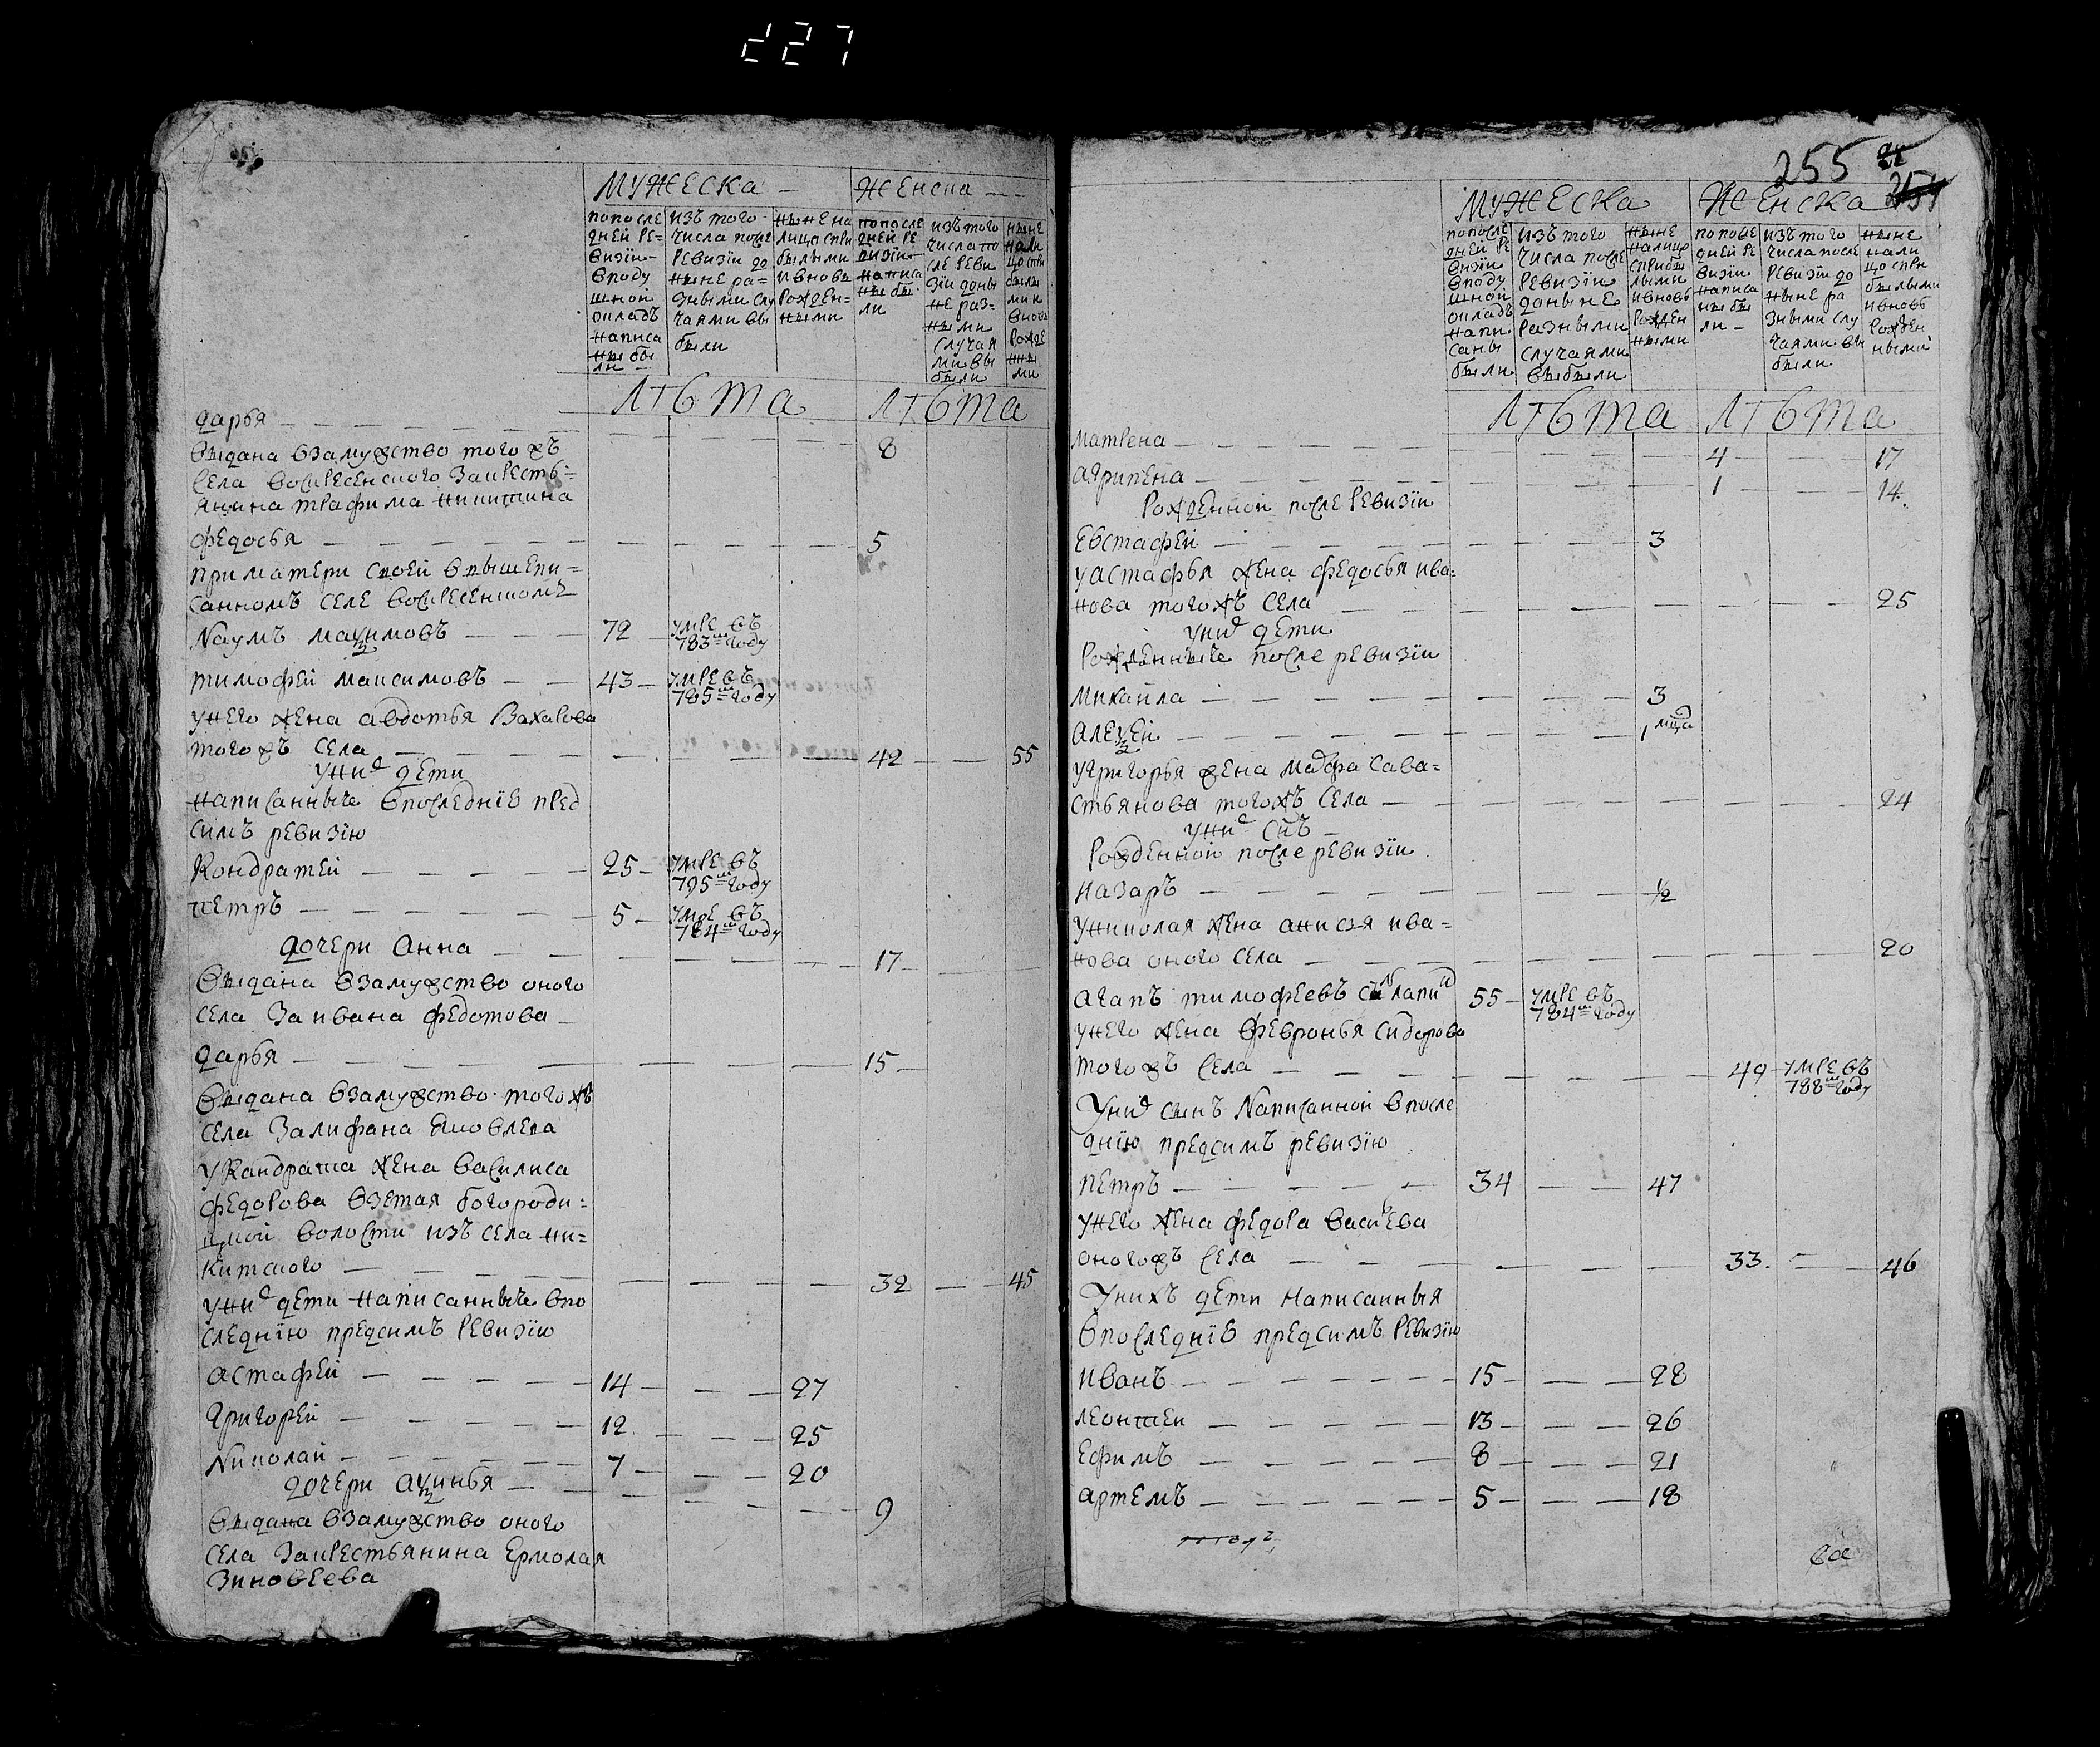 227
МУЖЕСКА ЖЕНСКА
попосле
дней ре=
визiи
вподу
шной
окладъ
написа
ны бы
ли
изъ того
числа после
ревизiи до
ныне ра=
зными слу
чаями вы
были
ныне на
лицо спри
былыми
ивновь
рожден=
ными
попосле
дней ре
визiи
написа
ны бы
ли
изъ того
числа по
сле реви
зiи доны
не раз=
ными
случая
ми вы
были
ныне
нали
цо спри
былы
ми и
вновь
рожде
нны
ми
лѣта лѣта
дарья — 8
выдана взамужство того жъ
села воскресенского закресть=
янина трафима никитина
федосья — 5
приматери своей ввышепи=
санномъ селе воскресенскомъ
Наумъ маѯимовъ — 72 — умре въ 783м году
тимофей максимовъ — 43 — умре въ 785м году
унего жена авдотья Захарова
того жъ села — 42 — 55
унихъ дети
написанныя впоследнiю пред
симъ ревизiю
Кондратей — 25 — умре въ 795м году
петръ — 5 — умре въ 784м году
дочери Анна — 17 —
выдана взамужство оного
села За ивана федотова
дарья — 15 —
выдана взамужство того жъ
села Залифана Яковлева
уКандратья жена василиса
федорова взетая богороди=
цкой волости изъ села ни=
китского — 32 — 45
унихъ дети написанныя впо
следнiю предсимъ ревизiю
астафей — 14 — 27
григорей — 12 — 25
Николай — 7 — 20
дочери аѯинья — 9
выдана взамужство оного
села закрестьянина Ермолая
Зиновеева
255
254
МУЖЕСКА ЖЕНСКА
попосле
дней ре
визiи
вподу
шной
окладъ
напи
саны
были
изъ того
числа после
ревизiи
доныне
разными
случаями
выбыли
ныне
налицо
сприбы
лыми
ивновь
рожден
ными
попосле
дней ре
визiи
написа
ны бы
ли —
изъ того
числа после
ревизiи до
ныне ра
зными слу
чаями вы
были
ныне
нали
цо спри
былыми
ивновь
рожден
ными
лѣта лѣта
матрена — 4 — 17
агрипена — 1 — 14
Рожденной после ревизiи
Евстафей — 3
уастафья жена федосья ива=
нова тогожъ села — 25
унихъ дети
Рожденныя после ревизiи
михайла — 3
алеѯей — 1 мца
угригорья жена марфа сава=
стьянова тогожъ села — 24
унихъ снъ
Рожденной после ревизiи
назаръ — ½
униколая жена анисья ива=
нова оного села — 20
агапъ тимофеевъ снъ лапин — 55 — умре въ 784м году
унего жена февронья сидорова
того жъ села — 49 умре въ 788м году
унихъ сынъ Написанной впосле
днiю предсимъ ревизiю
петръ — 34 — 47
унего жена федора васильева
оногожъ села — 33 — 46
унихъ дети написанныя
впоследнiю предсимъ ревизiю
иванъ — 15 — 28
леонтей — 13 — 26
Ефимъ — 8 — 21
артемъ — 5 — 18